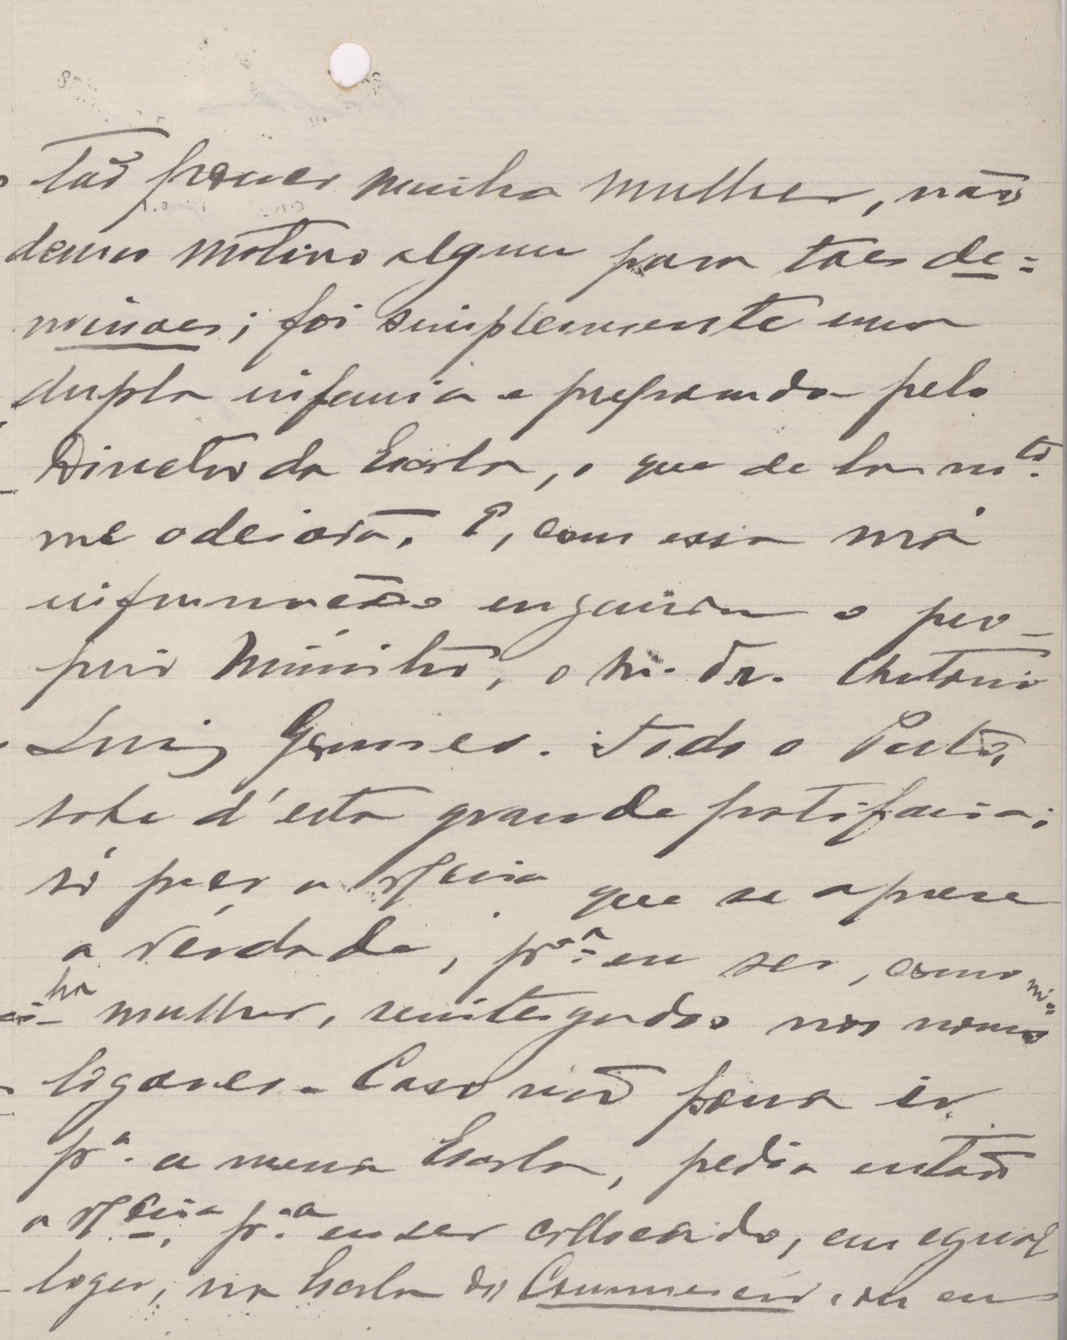 Tão pouco minha mulher, não
demos motivo algum para taes de=
missões; foi simplesmente uma
dupla infamia e preparada pelo
Director da Escola, o que de ha m.to
me odeiava. E, com essa má
informação enganou o pro-
prio Ministro, o Sr. Dr. Antonio
Luiz Gomes. Todo o Porto,
sabe d'esta grande patifaria;
só peço a V.Exia que se apure
a verdade, p.ra eu ser, como mi=
nha mulher, reintegrados nos nossos
logares. Caso não possa ir
p.a a mesma Escola, pedia então
a V.Exia, p.a eu ser collocado, em egual
logar, na Escola do Commercio, ou em